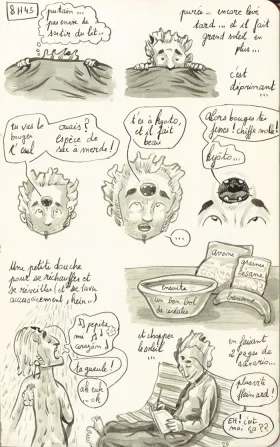 8H45
putain...
pas envie de
sortir du lit...
purée... encore levé
tard... et il fait
grand soleil en
plus...
c'est
déprimant
...
tu vas te
bouger
l'cul
ouais?
espèce de
sac à merde!
t'es à Kyoto,
et il fait
beau
...
Alors bouges tes
fesses! chiffe molle!
Kyoto...
Une petite douche
pour se réchauffer et
se réveiller (et se laver
accessoirement, hein..)
avoine
graines
sesame
banane
ensuite
un bon bol
de céréales
pepita
mi
corazón
ta gueule!
ah euh
ok
et choper
le soleil
...
en faisant
2 pages de
scénario...
plus vite
flemmard!
Eh! c'est
moi ça??